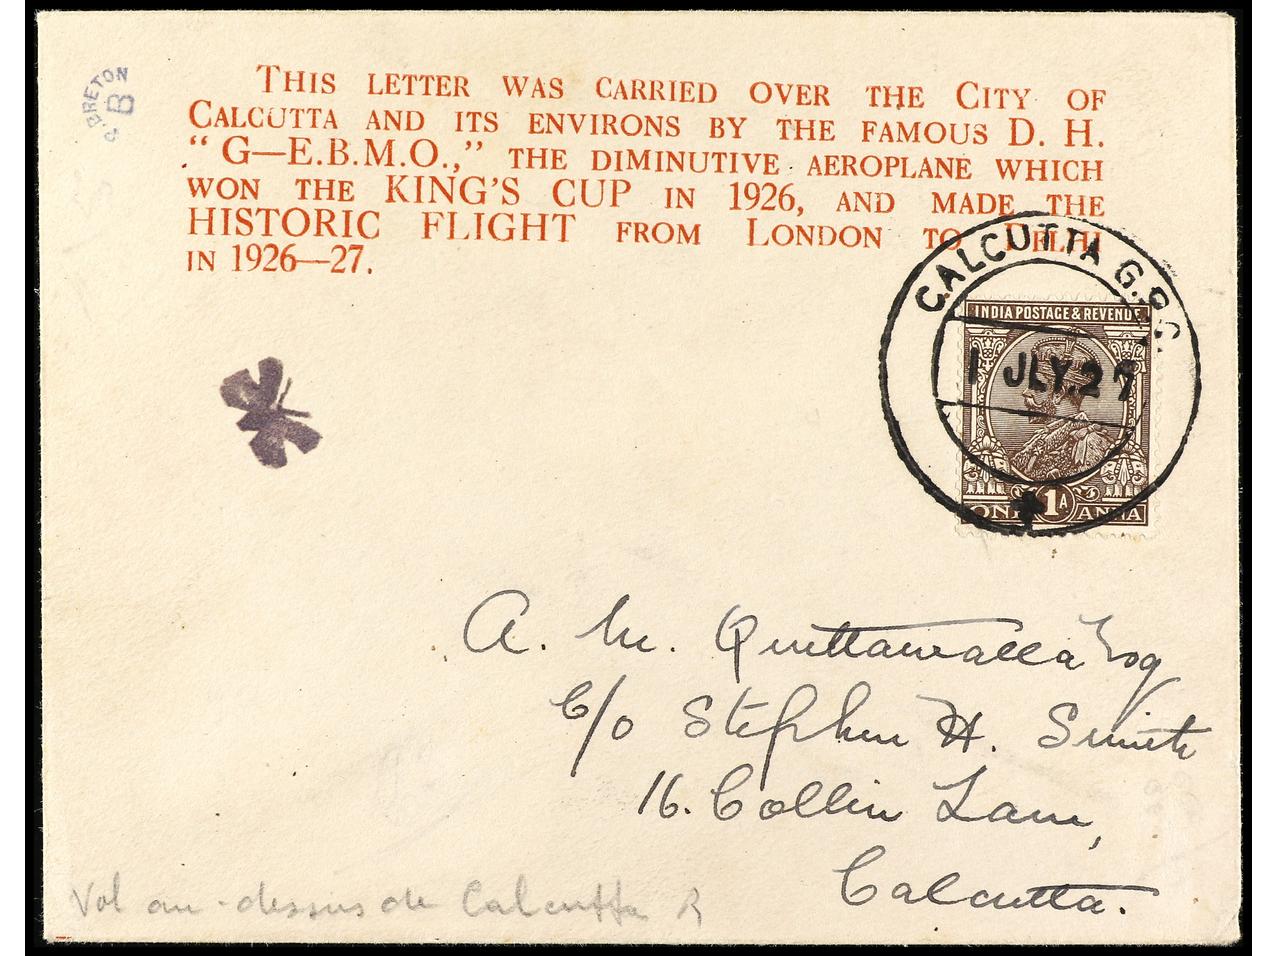 P. BRETON
B
THIS LETTER WAS CARRIED OVER THE CITY OF
CALCUTTA AND ITS ENVIRONS BY THE FAMOUS D. H.
"G—E.B.M.O.," THE DIMINUTIVE AEROPLANE WHICH
WON THE KING'S CUP IN 1926, AND MADE THE
HISTORIC FLIGHT FROM LONDON TO DELHI
IN 1926—27.
CALCUTTA G.P.O.
1 JLY.27
INDIA POSTAGE & REVENUE
1A
ONE ANNA
A. M. Quettawalla Esq
C/o Stephen H. Smith
16. Collin Lane,
Calcutta.
Vol au-dessus de Calcutta R